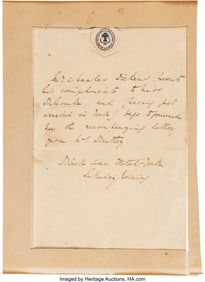 Mr Charles Dickens presents
his compliments to Miss
and having just
arrived in York, begs to forward
her the accompanying letter
from Mr
Black Swan Hotel York
Saturday Evening
Imaged by Heritage Auctions, HA.com